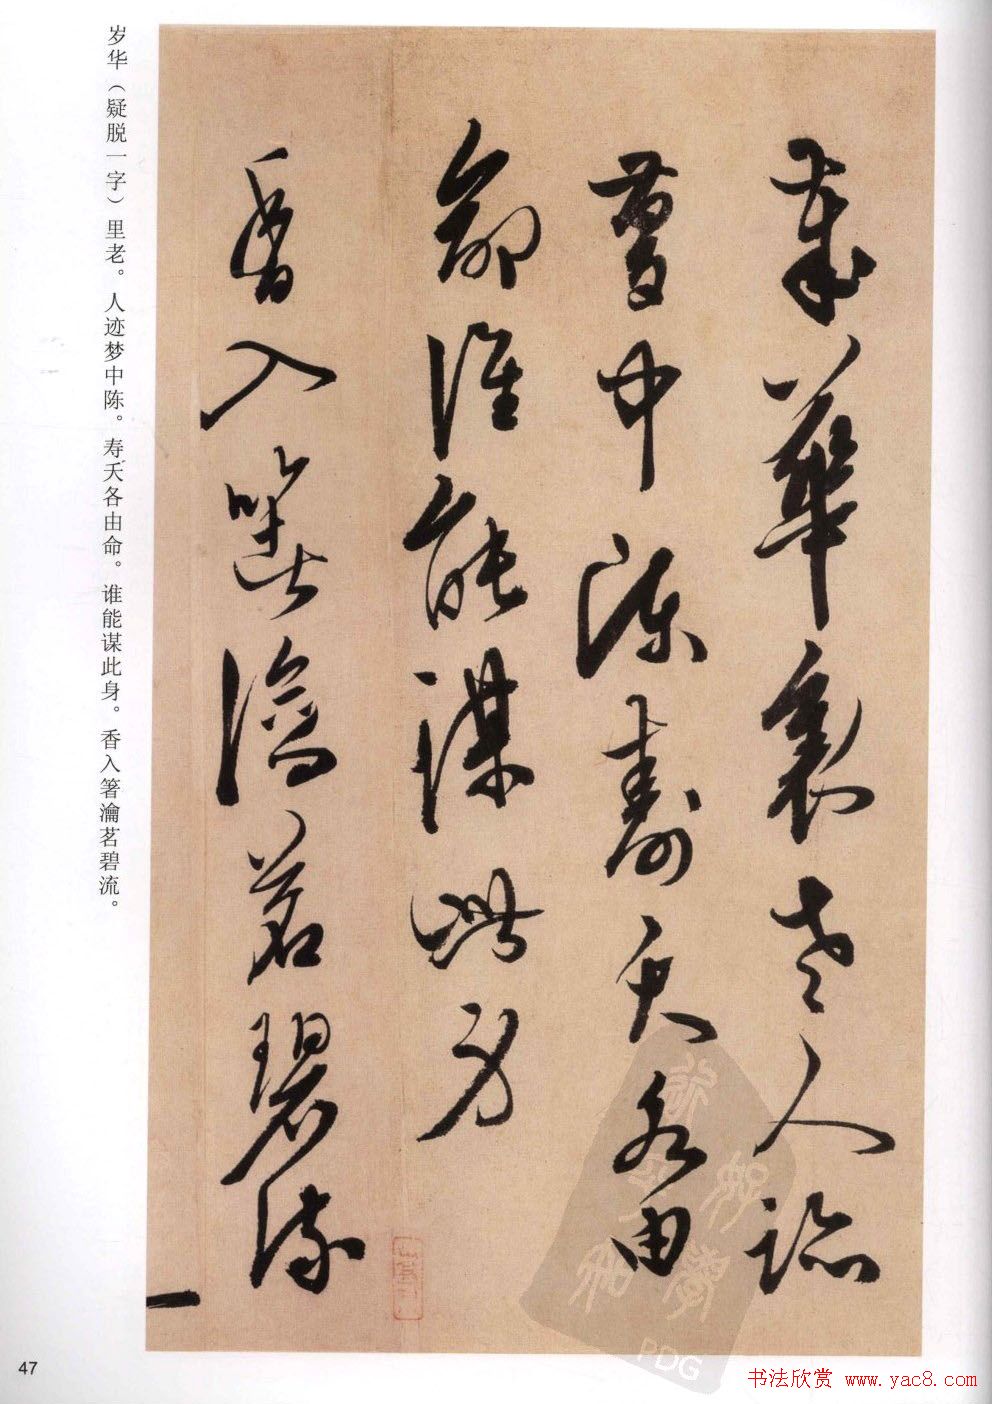 歲華裏老人跡
夢中陳壽夭各由
命誰能謀此身
香入箸瀹茗碧流
岁华（疑脱一字）里老。人迹梦中陈。寿夭各由命。谁能谋此身。香入箸瀹茗碧流。
47
PDG
书法欣赏 www.yac8.com